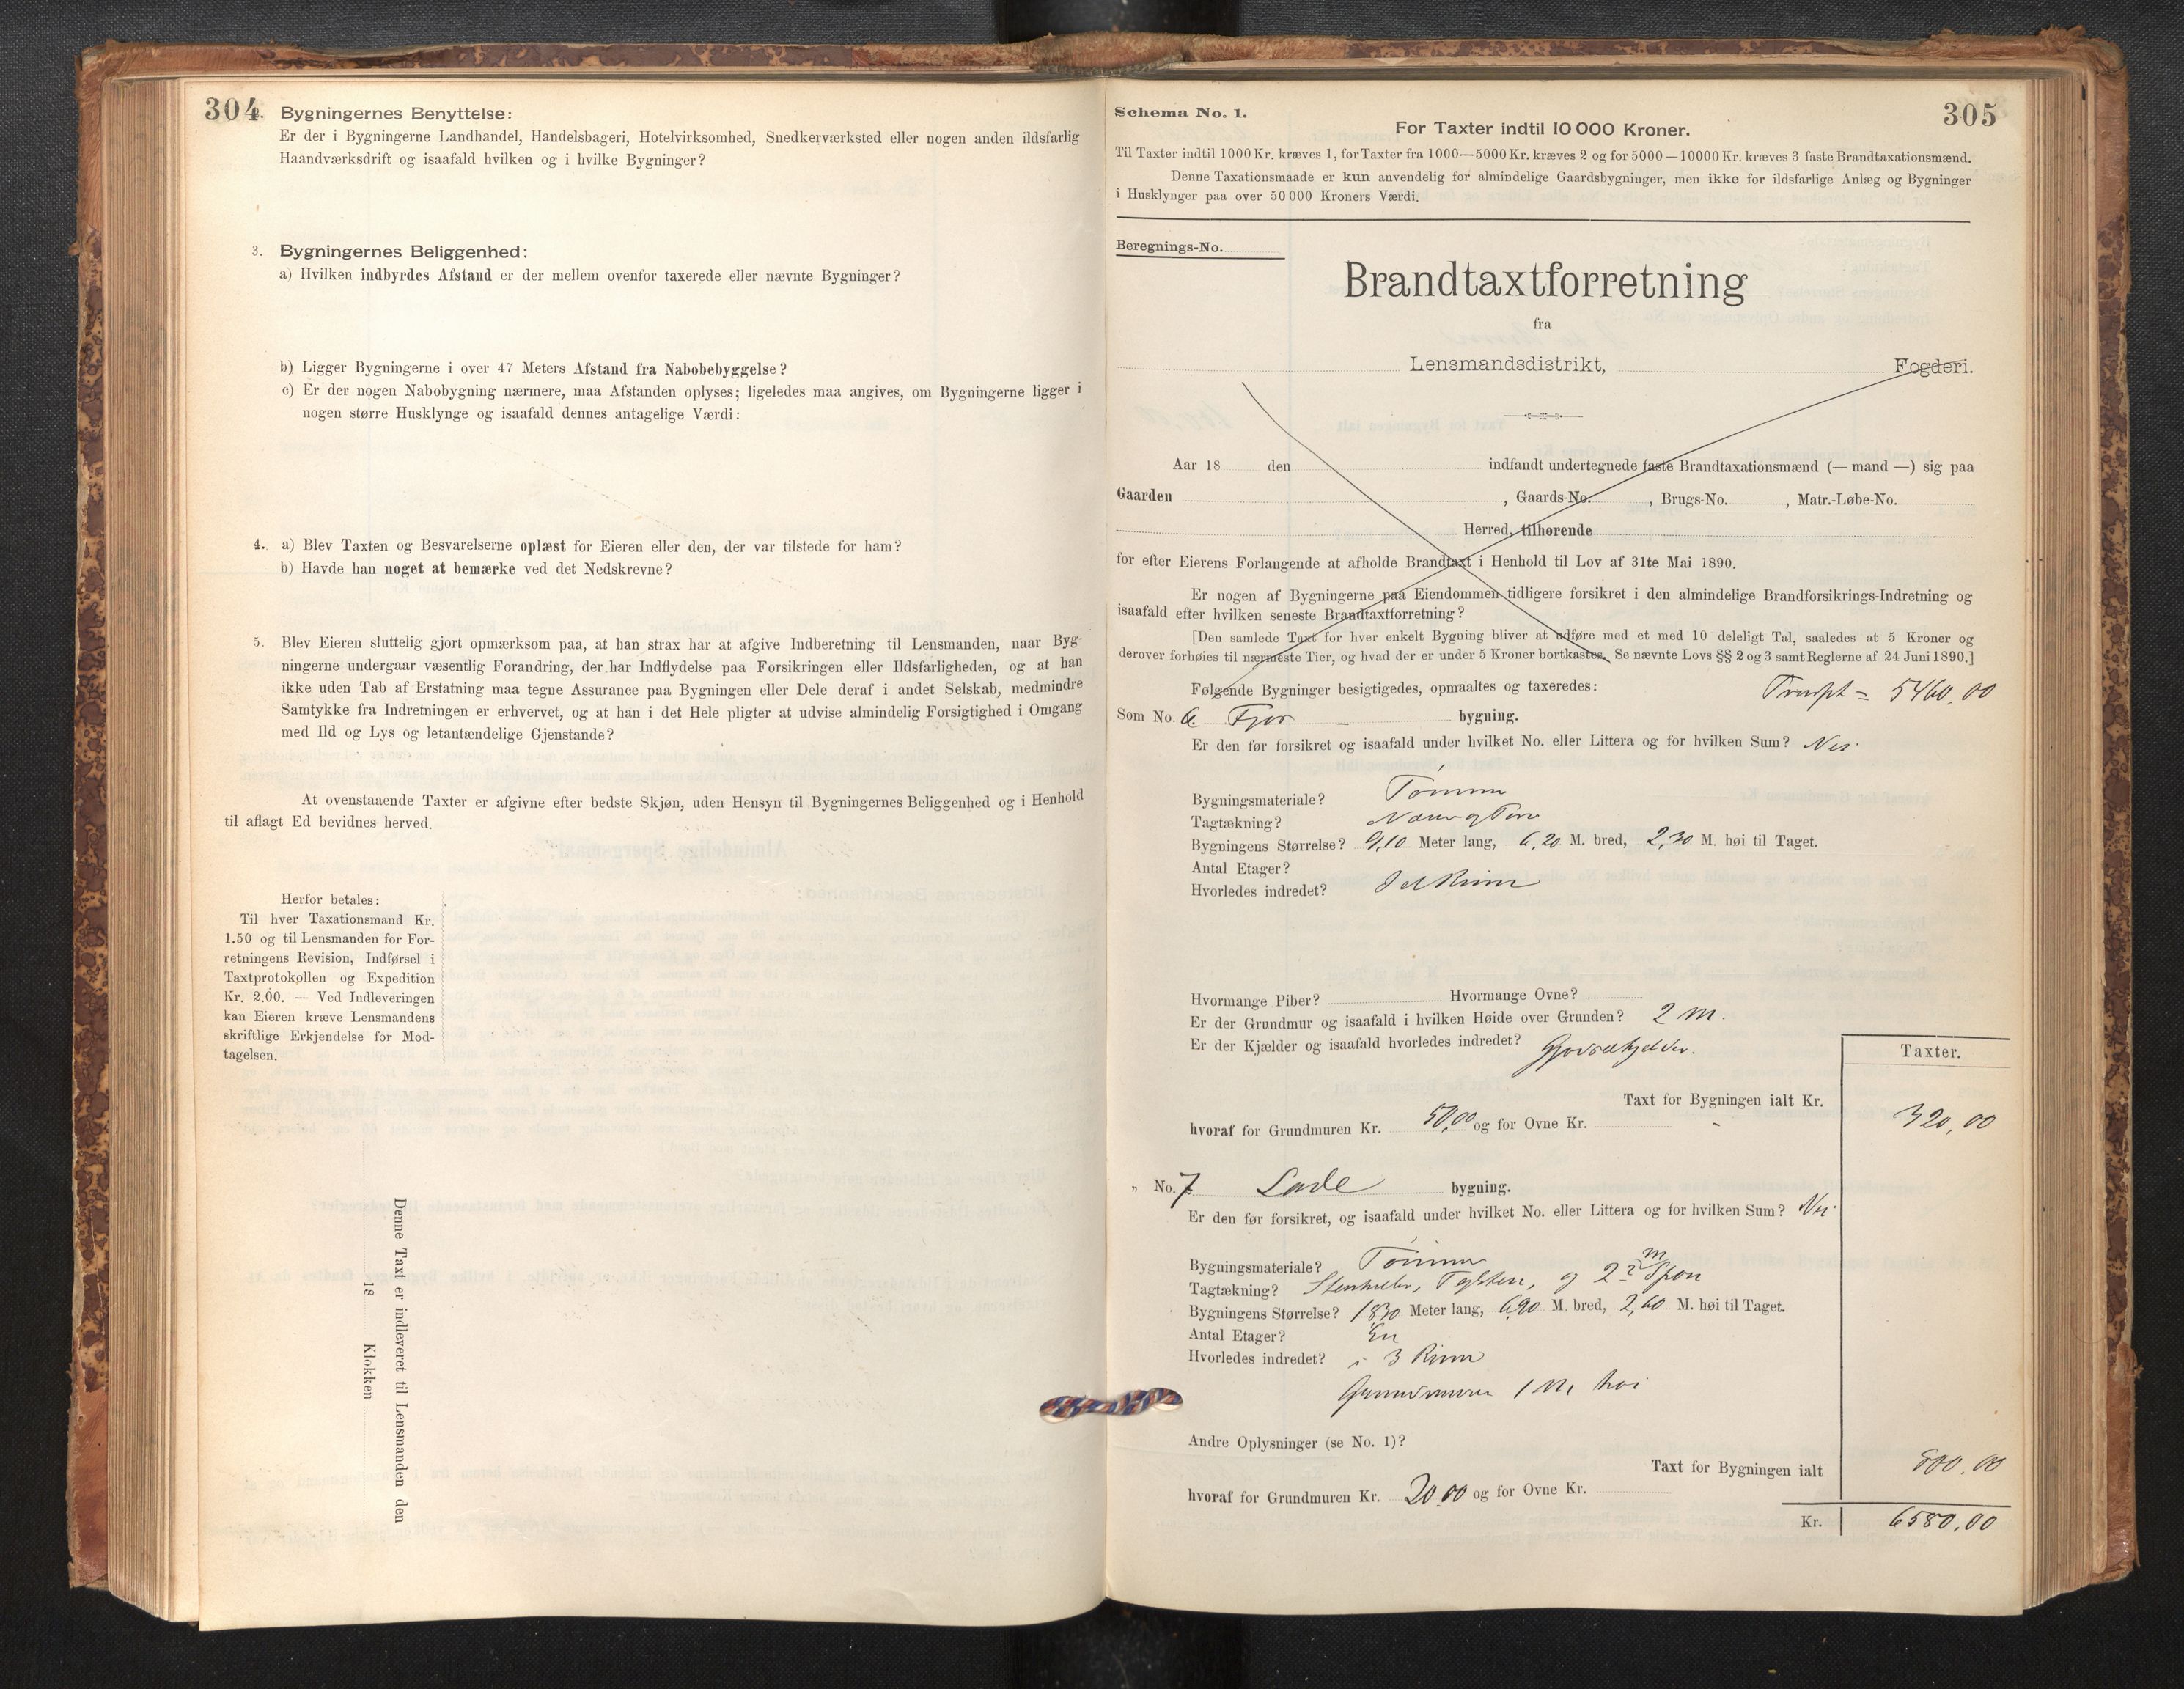 304
2. Bygningernes Benyttelse:
Er der i Bygningerne Landhandel, Handelsbageri, Hotelvirksomhed, Snedkerværksted eller nogen anden ildsfarlig
Haandværksdrift og isaafald hvilken og i hvilke Bygninger?
3. Bygningernes Beliggenhed:
a) Hvilken indbyrdes Afstand er der mellem ovenfor taxerede eller nævnte Bygninger?
b) Ligger Bygningerne i over 47 Meters Afstand fra Nabobebyggelse?
c) Er der nogen Nabobygning nærmere, maa Afstanden oplyses; ligeledes maa angives, om Bygningerne ligger i
nogen større Husklynge og isaafald dennes antagelige Værdi:
4. a) Blev Taxten og Besvarelserne oplæst for Eieren eller den, der var tilstede for ham?
b) Havde han noget at bemærke ved det Nedskrevne?
5. Blev Eieren sluttelig gjort opmærksom paa, at han strax har at afgive Indberetning til Lensmanden, naar Byg-
ningerne undergaar væsentlig Forandring, der har Indflydelse paa Forsikringen eller Ildsfarligheden, og at han
ikke uden Tab af Erstatning maa tegne Assurance paa Bygningen eller Dele deraf i andet Selskab, medmindre
Samtykke fra Indretningen er erhvervet, og at han i det Hele pligter at udvise almindelig Forsigtighed i Omgang
med Ild og Lys og letantændelige Gjenstande?
At ovenstaaende Taxter er afgivne efter bedste Skjøn, uden Hensyn til Bygningernes Beliggenhed og i Henhold
til aflagt Ed bevidnes herved.
Herfor betales:
Til hver Taxationsmand Kr.
1.50 og til Lensmanden for For-
retningens Revision, Indførsel i
Taxtprotokollen og Expedition
Kr. 2.00. — Ved Indleveringen
kan Eieren kræve Lensmandens
skriftlige Erkjendelse for Mod-
tagelsen.
Denne Taxt er indleveret til Lensmanden den
18 Klokken
305
Schema No. 1.
For Taxter indtil 10 000 Kroner.
Til Taxter indtil 1000 Kr. kræves 1, for Taxter fra 1000—5000 Kr. kræves 2 og for 5000—10000 Kr. kræves 3 faste Brandtaxationsmænd.
Denne Taxationsmaade er kun anvendelig for almindelige Gaardsbygninger, men ikke for ildsfarlige Anlæg og Bygninger
i Husklynger paa over 50 000 Kroners Værdi.
Beregnings-No.
Brandtaxtforretning
fra
Lensmandsdistrikt, Fogderi.
Aar 18 den indfandt undertegnede faste Brandtaxationsmænd (— mand —) sig paa
Gaarden , Gaards-No. , Brugs-No. , Matr.-Løbe-No.
Herred, tilhørende
for efter Eierens Forlangende at afholde Brandtaxt i Henhold til Lov af 31te Mai 1890.
Er nogen af Bygningerne paa Eiendommen tidligere forsikret i den almindelige Brandforsikrings-Indretning og
isaafald efter hvilken seneste Brandtaxtforretning?
[Den samlede Taxt for hver enkelt Bygning bliver at udføre med et med 10 deleligt Tal, saaledes at 5 Kroner og
derover forhøies til nærmeste Tier, og hvad der er under 5 Kroner bortkastes. Se nævnte Lovs §§ 2 og 3 samt Reglerne af 24 Juni 1890.]
Følgende Bygninger besigtigedes, opmaaltes og taxeredes: Trnspt = 5460,00
Som No. 6. Fjøs — bygning.
Er den før forsikret og isaafald under hvilket No. eller Littera og for hvilken Sum? Nei
Bygningsmateriale? Tømmer
Tagtækning? Næver og Torv
Bygningens Størrelse? 9,10 Meter lang, 6,20 M. bred, 2,30 M. høi til Taget.
Antal Etager?
Hvorledes indredet? I et Rum
Hvormange Piber? Hvormange Ovne?
Er der Grundmur og isaafald i hvilken Høide over Grunden? 2 m.
Er der Kjælder og isaafald hvorledes indredet? Gjødselkjelder.
Taxter.
Taxt for Bygningen ialt Kr. 320,00
hvoraf for Grundmuren Kr. 50,00 og for Ovne Kr. -
„ No. 7. Lade bygning.
Er den før forsikret, og isaafald under hvilket No. eller Littera og for hvilken Sum? Nei
Bygningsmateriale? Tømmer
Tagtækning? Stenheller, Tagsten, og 2 m Spon
Bygningens Størrelse? 18,30 Meter lang, 6,90 M. bred, 2,60 M. høi til Taget.
Antal Etager? En
Hvorledes indredet? i 3 Rum
Grundmuren 1 M. høi
Andre Oplysninger (se No. 1)?
Taxt for Bygningen ialt 800,00
hvoraf for Grundmuren Kr. 20,00 og for Ovne Kr.
Kr. 6580,00